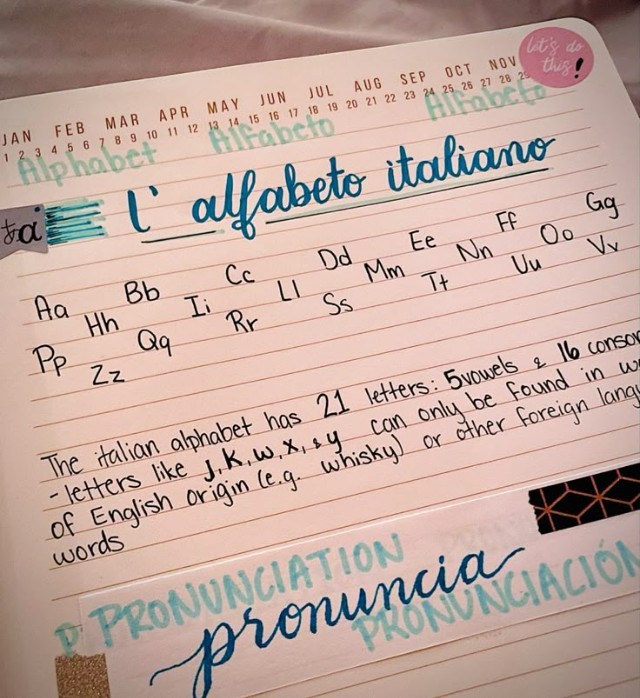 let's do
this!
JAN FEB MAR APR MAY JUN JUL AUG SEP OCT NOV
1 2 3 4 5 6 7 8 9 10 11 12 13 14 15 16 17 18 19 20 21 22 23 24 25 26 27 28 29
Alphabet Alfabeto Alfabeto
あa
l' alfabeto italiano
Aa Bb Cc Dd Ee Ff Gg
Hh Ii Ll Mm Nn Oo
Pp Qq Rr Ss Tt Uu Vv
Zz
The italian alphabet has 21 letters: 5 vowels & 16
- letters like J, K, w, x, & y can only be found in
of English origin (e.g. whisky) or other foreign
words
PRONUNCIATION
pronuncia
PRONUNCIACIÓN